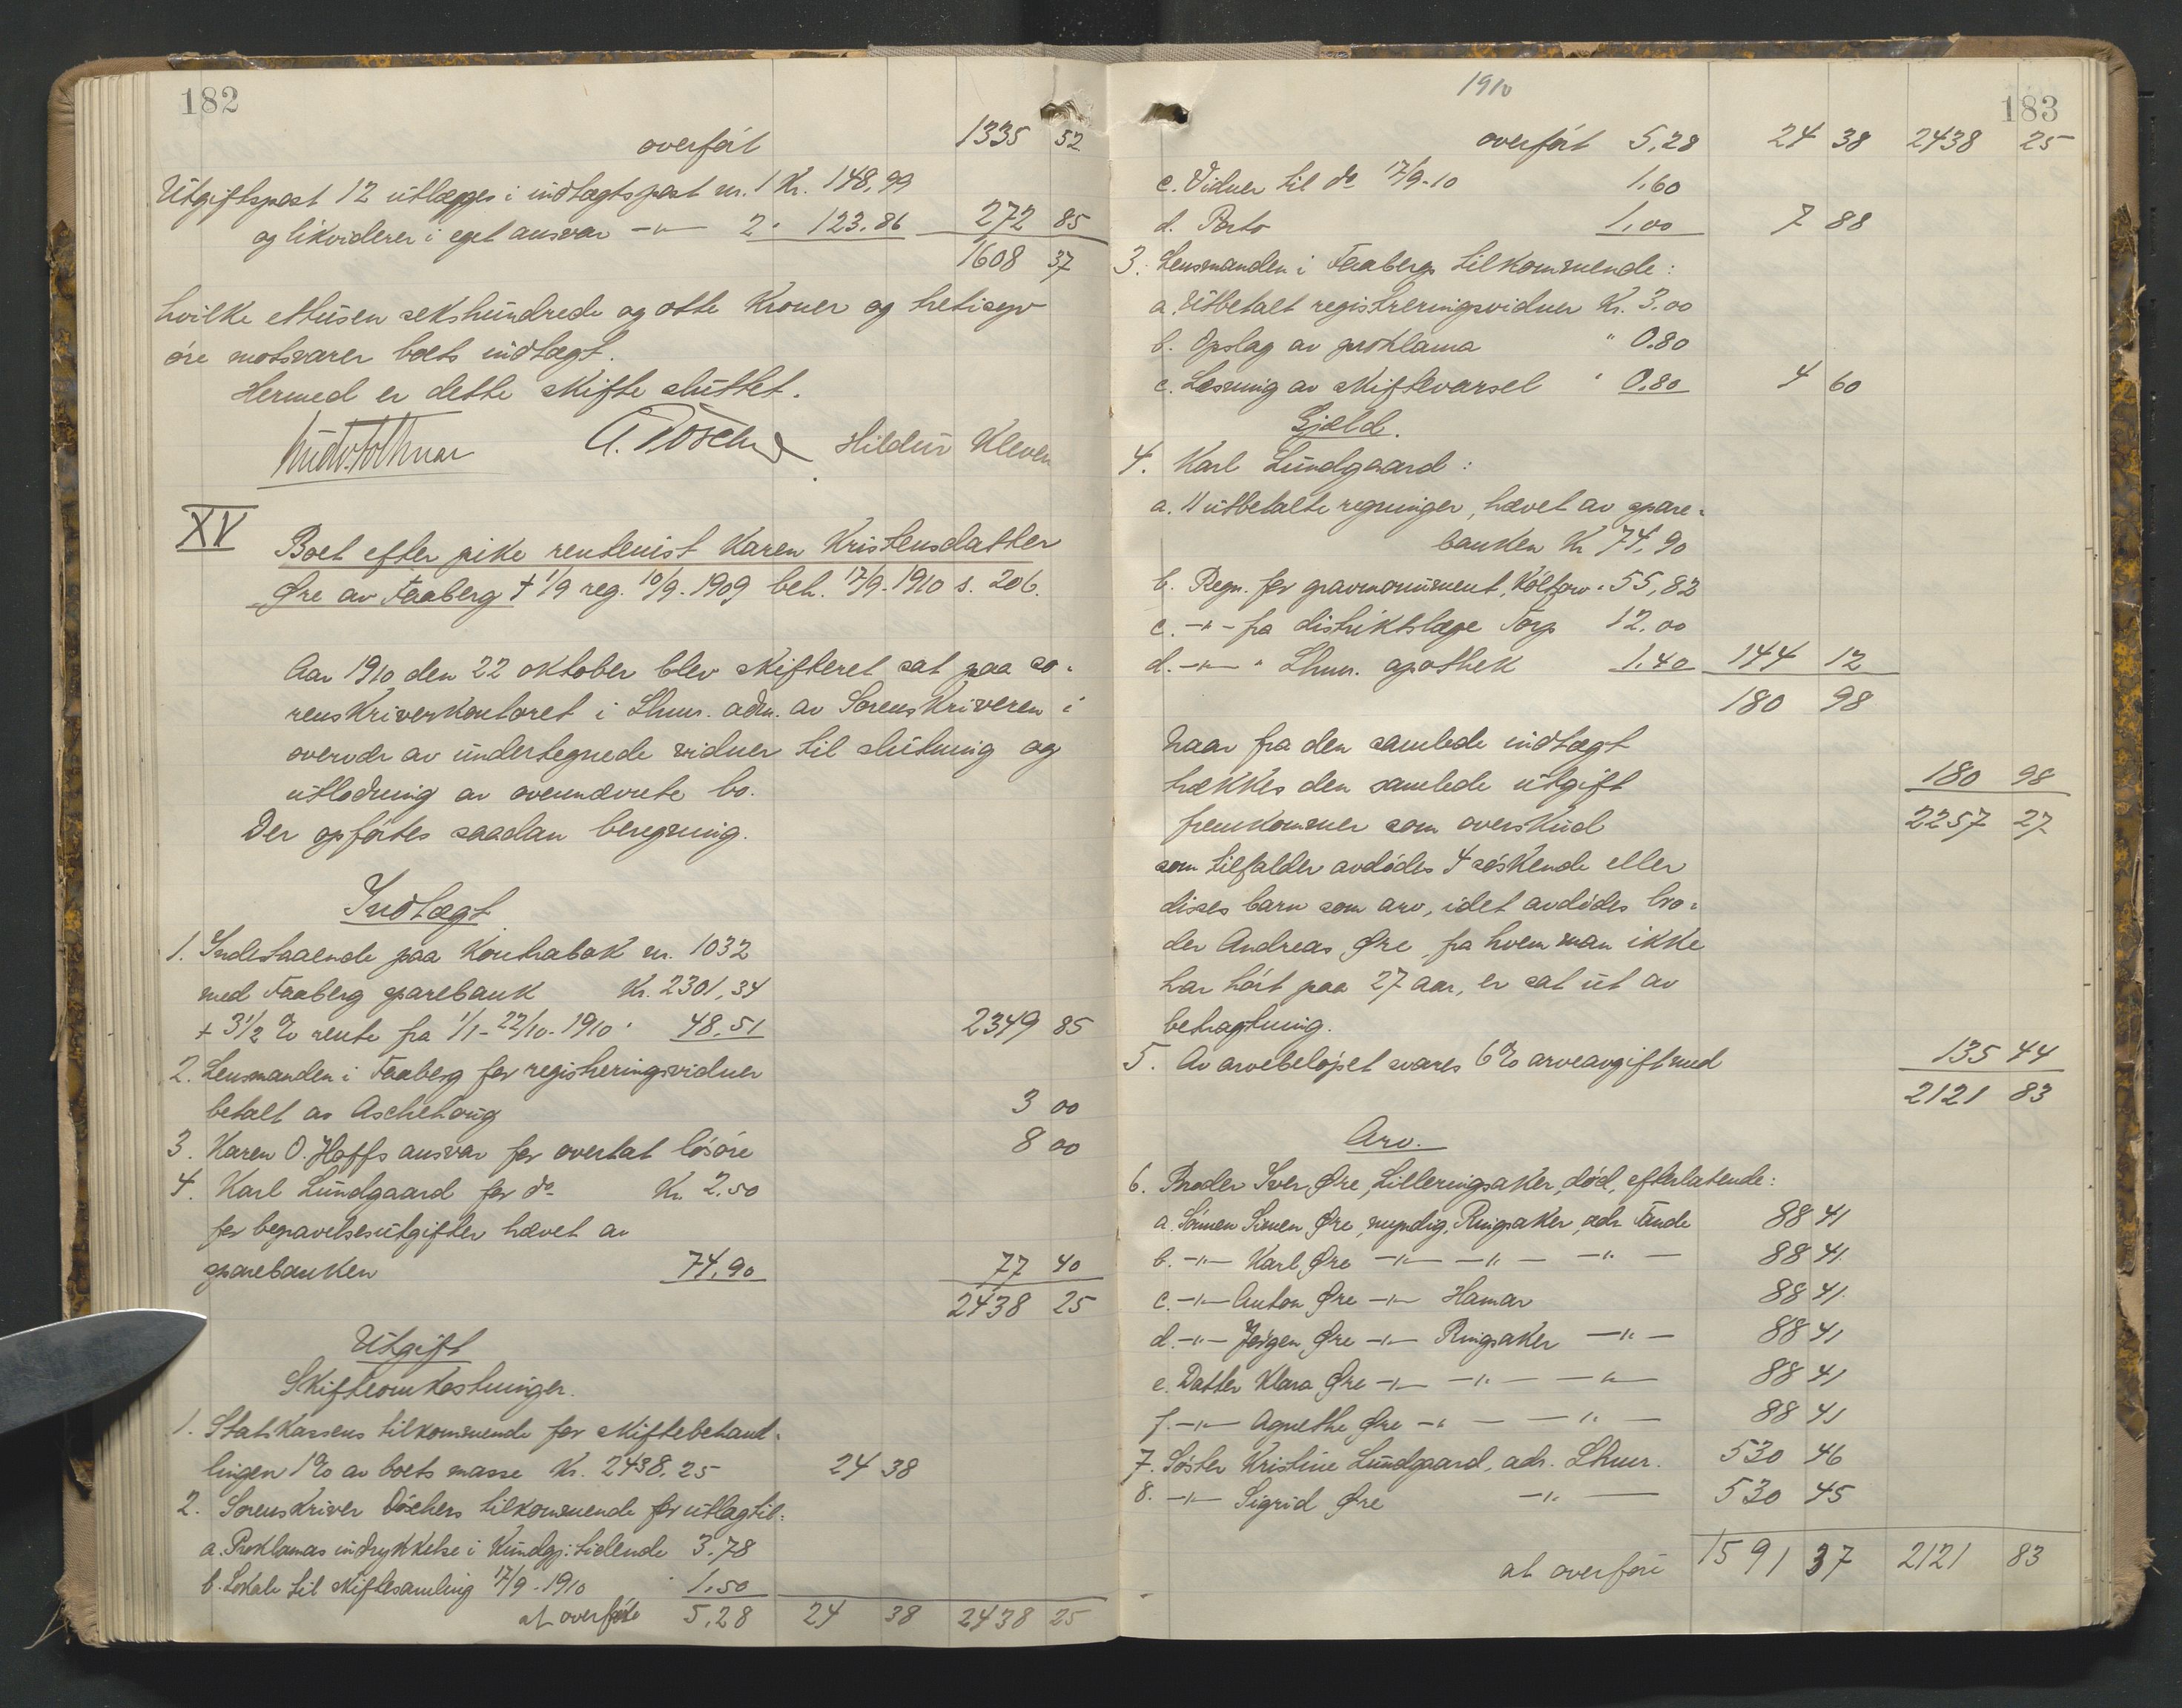 182
overført 1335 52
Utgiftspost 12 utlægges i indtægtspost nr. 1 Kr. 148,99
og likviderer i eget ansvar -"- 2 " 123,86 272 85
1608 37
hvilke ettusen sekshundrede og otte Kroner og tretisyv
øre motsvarer boets indtægt.
Hermed er dette skifte sluttet.
Hildur Kleven
XV
Boet efter pike rentenist Karen Kristensdatter
Øre av Faaberg † 1/9 reg. 10/9. 1909 beh. 17/9. 1910 s. 206.
Aar 1910 den 22 oktober blev skifteret sat paa so-
renskriverkontoret i Lhmr. adm. av Sorenskriveren i
overvær av undertegnede vidner til slutning og
utlodning av ovennævnte bo.
Der opførtes saadan beregning.
Indtægt
1. Indestaaende paa Kontrabok nr. 1032
med Faaberg sparebank Kr. 2301,34
+ 3 1/2 % rente fra 1/1 - 22/10. 1910 " 48.51 2349 85
2. Lensmanden i Faaberg for registreringsvidner
betalt av Aschehoug 3 00
3. Karen O. Hoffs ansvar for overtat løsøre 8 00
4. Karl Lundgaard for do Kr. 2.50
for begravelsesutgifter hævet av
sparebanken 74,90 77 40
2438 25
Utgift
Skifteomkostninger.
1. Statskassens tilkommende for skiftebehand-
lingen 1% av boets masse Kr. 2438,25 24 38
2. Sorenskriver Döschers tilkommende for utlæg til:
a. Proklamas indrykkelse i Kundgj. tidende 3.78
b. Lokale til skiftesamling 17/9. 1910 " 1,50
at overføre 5,28 24 38 2438 25
1910
183
overført 5,28 24 38 2438 25
c. Vidner til do 17/9-10 1,60
d. Porto 1,00 7 88
3. Lensmanden i Faabergs tilkommende:
a. Utbetalt registreringsvidner Kr. 3.00
b. Opslag av proklama " 0.80
c. Læsning av skiftevarsel " 0.80 4 60
Gjæld.
4. Karl Lundgaard:
a. 11 utbetalte regninger, hævet av spare-
banken Kr 74,90
b. Regn. for gravmonument, " 55,82
c. -"- fra distriktslæge Torp 12.00
d. -"- " Lhmr. apothek 1.40 144 12
180 98
Naar fra den samlede indtægt
trækkes den samlede utgift 180 98
fremkommer som overskud 2257 27
som tilfalder avdødes 4 søskende eller
disses barn som arv, idet avdødes bro-
der Andreas Øre, fra hvem man ikke
har hørt paa 27 aar, er sat ut av
betragtning.
5. Av arvebeløpet svares 6% arveavgift med 135 44
2121 83
Arv.
6. Broder Iver Øre, Lilleringsaker, død, efterlatende:
a. Sønnen Simen Øre, myndig, Ringsaker, adr Tande 88 41
b. -"- Karl Øre -"- -"- -"- 88 41
c. -"- Anton Øre -"- Hamar 88 41
d. -"- Jørgen Øre -"- Ringsaker -"- 88 41
e. Datter Klara Øre -"- -"- -"- 88 41
f. -"- Agnethe Øre -"- -"- 88 41
7. Søster Kristine Lundgaard, adr. Lhmr. 530 46
8. -"- Sigrid Øre -"- 530 45
at overføre 1591 37 2121 83